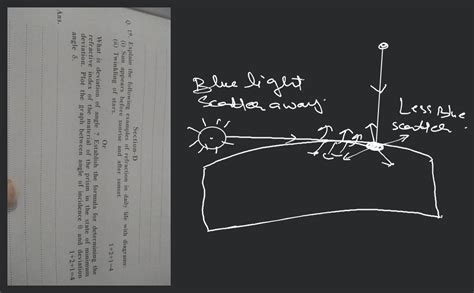 Section-D
Q. 19. Explain the following examples of refraction in daily life with diagrams:
(i) Sun appears before sunrise and after sunset.
(ii) Twinkling of stars. 1+2+1=4
Or
What is deviation of angle ? Establish the formula for determining the
refractive index of the material of the prism in the state of minimum
deviation. Plot the graph between angle of incidence θ and deviation
angle δ. 1+2+1=4
Ans.
Blue light
Scatter away
Less Blue
scatter